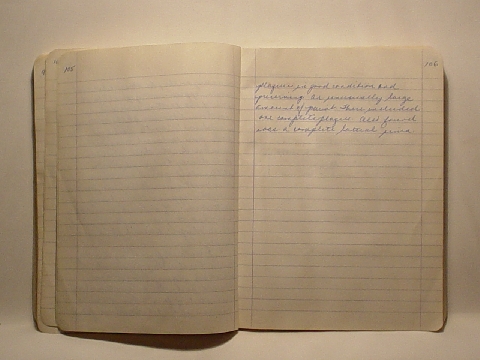 105
106
plaques in good condition and
preserving an unusually large
amount of paint. There included
one complete plaque. Also found
was a complete lateral